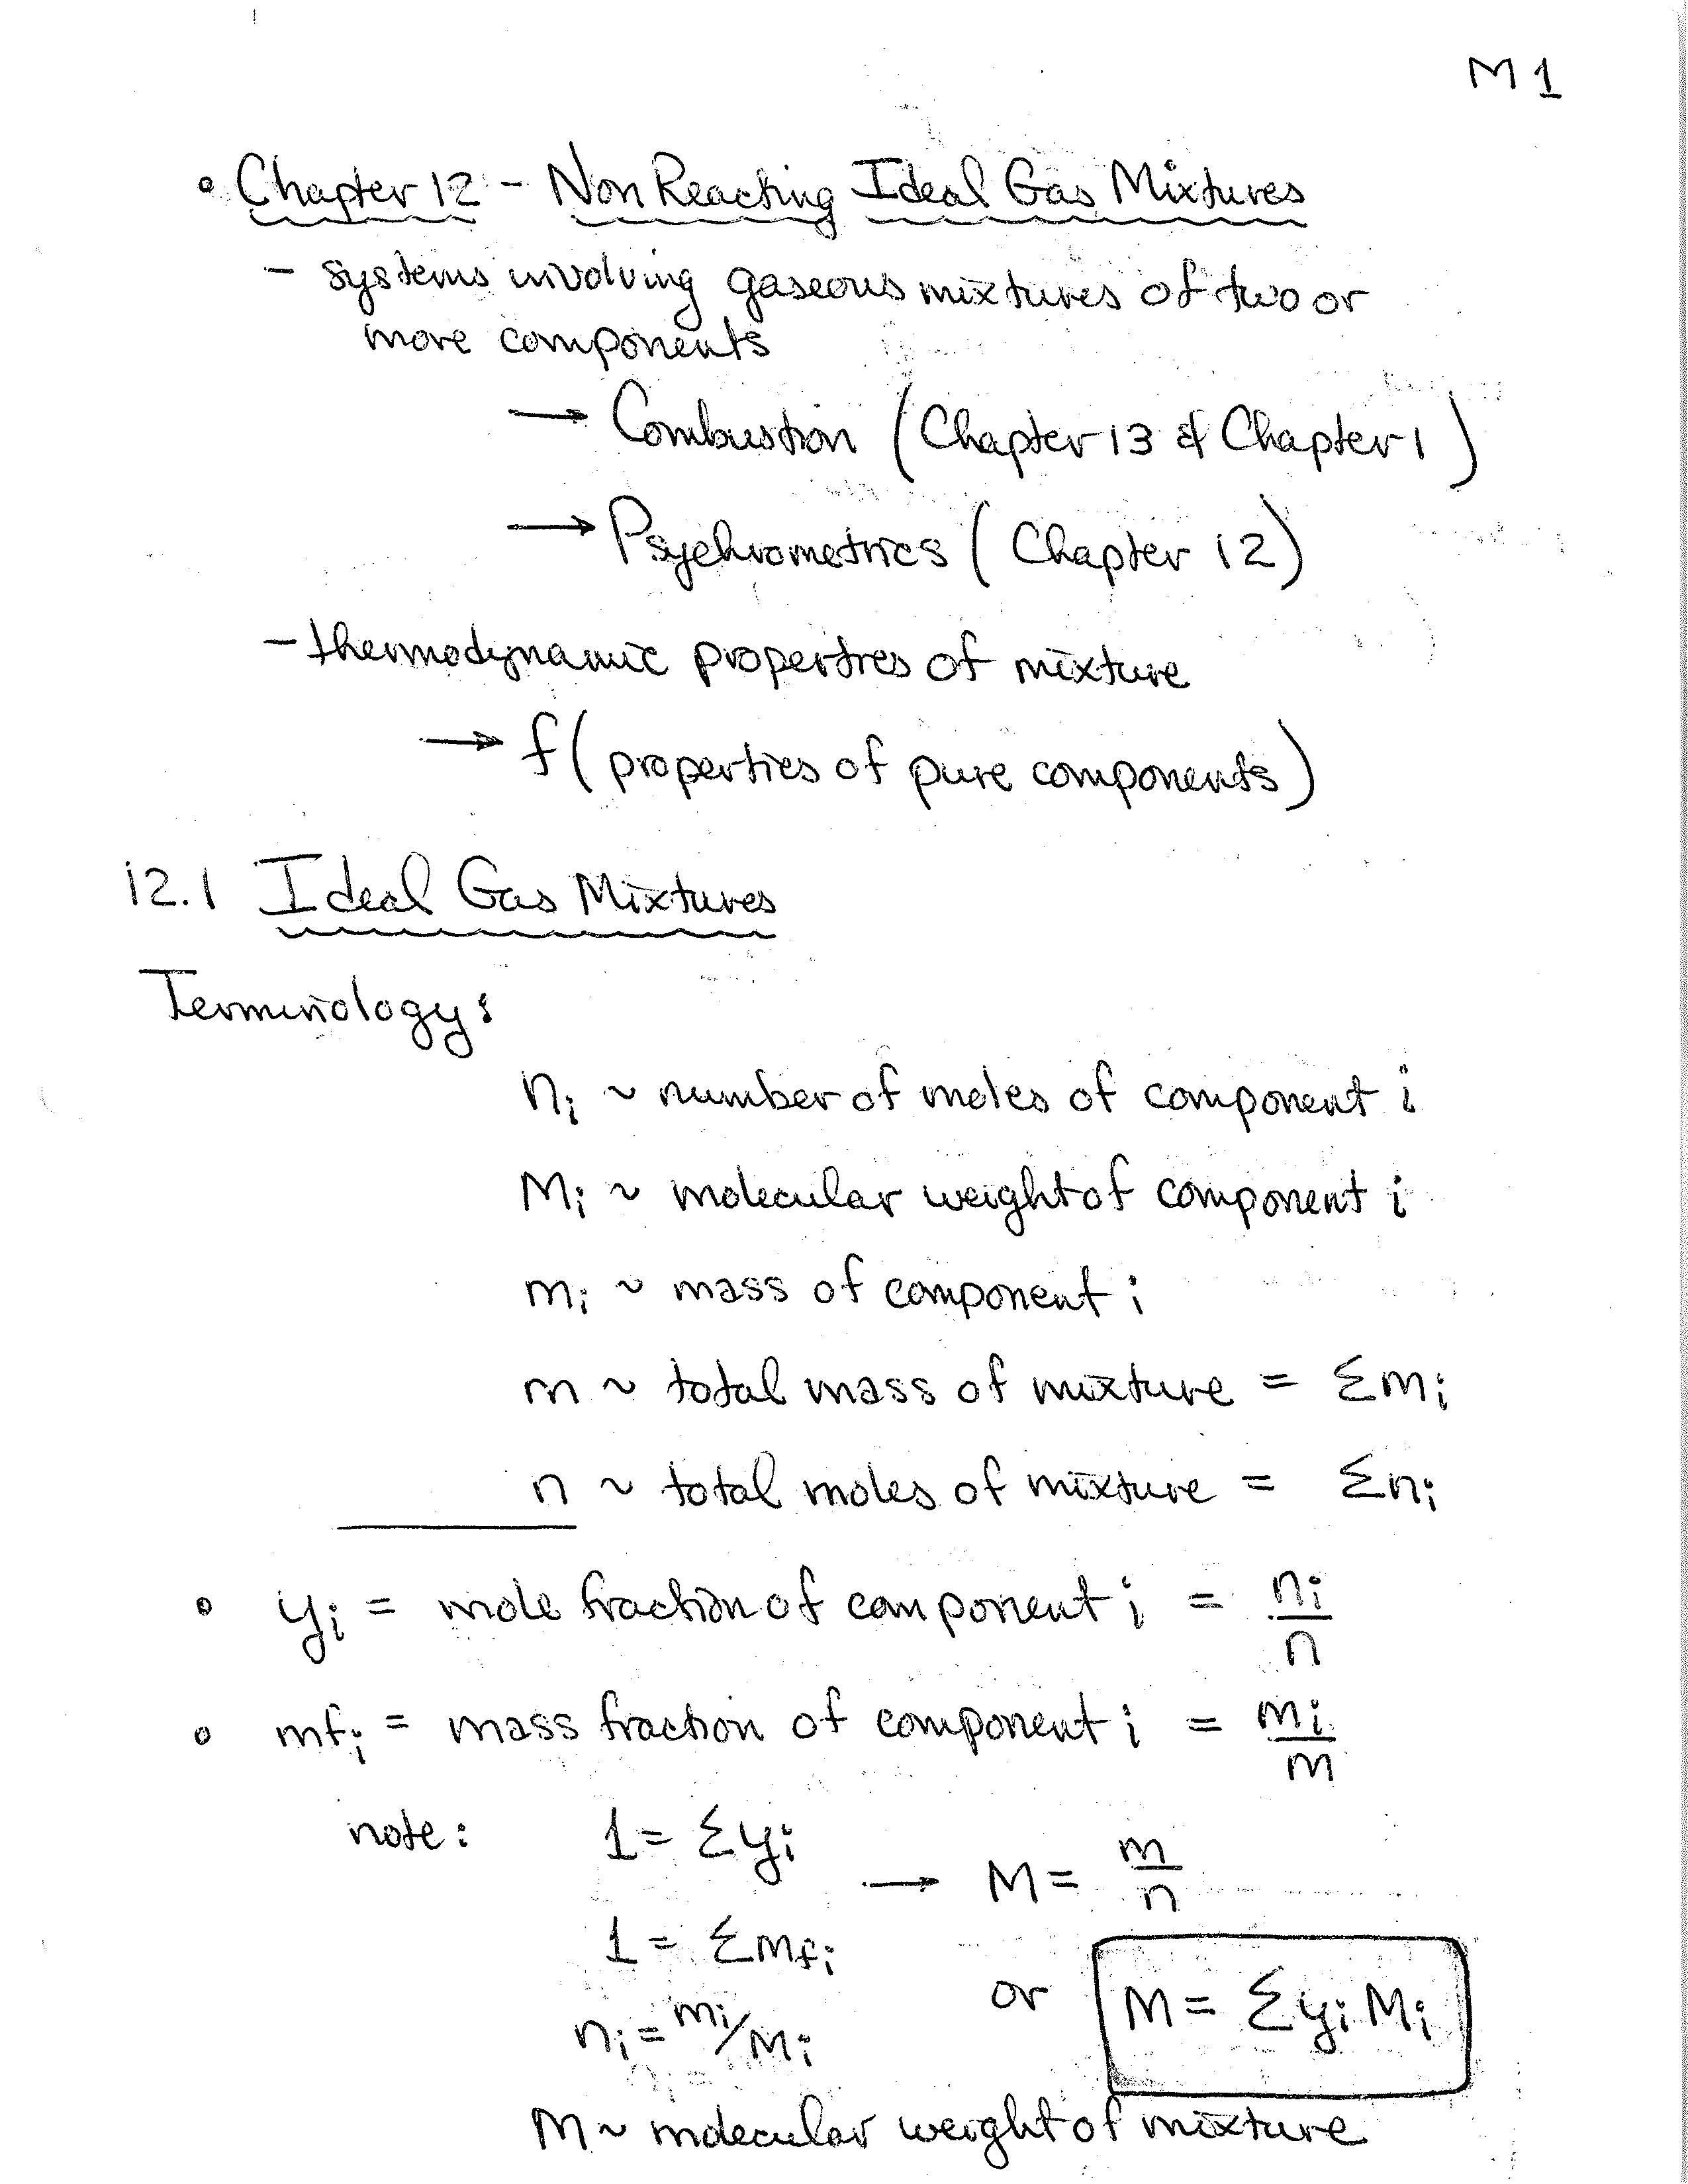 M 1
• Chapter 12 - Non Reacting Ideal Gas Mixtures
- systems involving gaseous mixtures of two or
more components
→ Combustion (Chapter 13 & Chapter 1)
→ Psychrometrics (Chapter 12)
- thermodynamic properties of mixture
→ f(properties of pure components)
12.1 Ideal Gas Mixtures
Terminology:
nᵢ ~ number of moles of component i
Mᵢ ~ molecular weight of component i
mᵢ ~ mass of component i
m ~ total mass of mixture = Σmᵢ
n ~ total moles of mixture = Σnᵢ
• yᵢ = mole fraction of component i = nᵢ/n
• mfᵢ = mass fraction of component i = mᵢ/m
note: 1 = Σyᵢ
→ M = m/n
1 = Σmfᵢ
or M = ΣyᵢMᵢ
nᵢ = mᵢ/Mᵢ
M ~ molecular weight of mixture